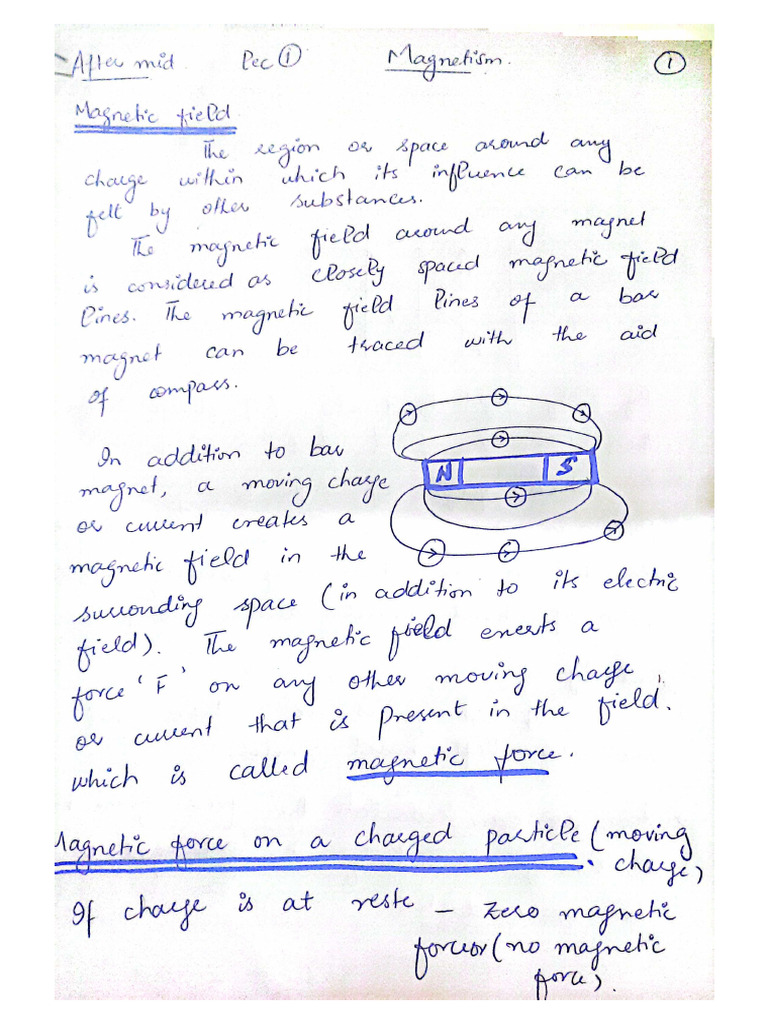 After mid Lec ① Magnetism. ①
Magnetic field
The region or space around any
charge within which its influence can be
felt by other substances.
The magnetic field around any magnet
is considered as closely spaced magnetic field
lines. The magnetic field lines of a bar
magnet can be traced with the aid
of compass.
In addition to bar
magnet, a moving charge
or current creates a
magnetic field in the
surrounding space (in addition to its electric
field). The magnetic field enerts a
force 'F' on any other moving charge,
or current that is present in the field.
which is called magnetic force.
N S
Magnetic force on a charged particle (moving
charge)
If charge is at reste – zero magnetic
force or (no magnetic
force).